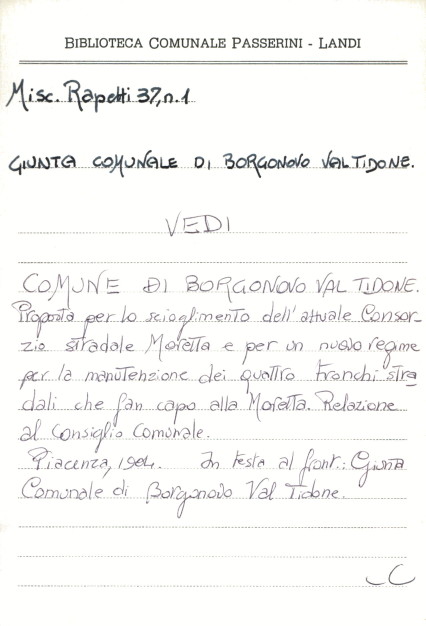 BIBLIOTECA COMUNALE PASSERINI - LANDI
Misc. Rapetti 37, n. 1
GIUNTA COMUNALE DI BORGONOVO VAL TIDONE.
VEDI
COMUNE DI BORGONOVO VAL TIDONE.
Proposta per lo scioglimento dell'attuale Consor-
zio stradale Moretta e per un nuovo regime
per la manutenzione dei quattro tronchi stra
dali che fan capo alla Moretta. Relazione
al Consiglio Comunale.
Piacenza, 1904. In testa al front.: Giunta
Comunale di Borgonovo Val Tidone.